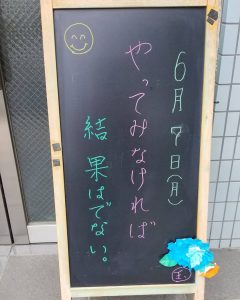 6月7日(月)
やってみなければ
結果はでない。